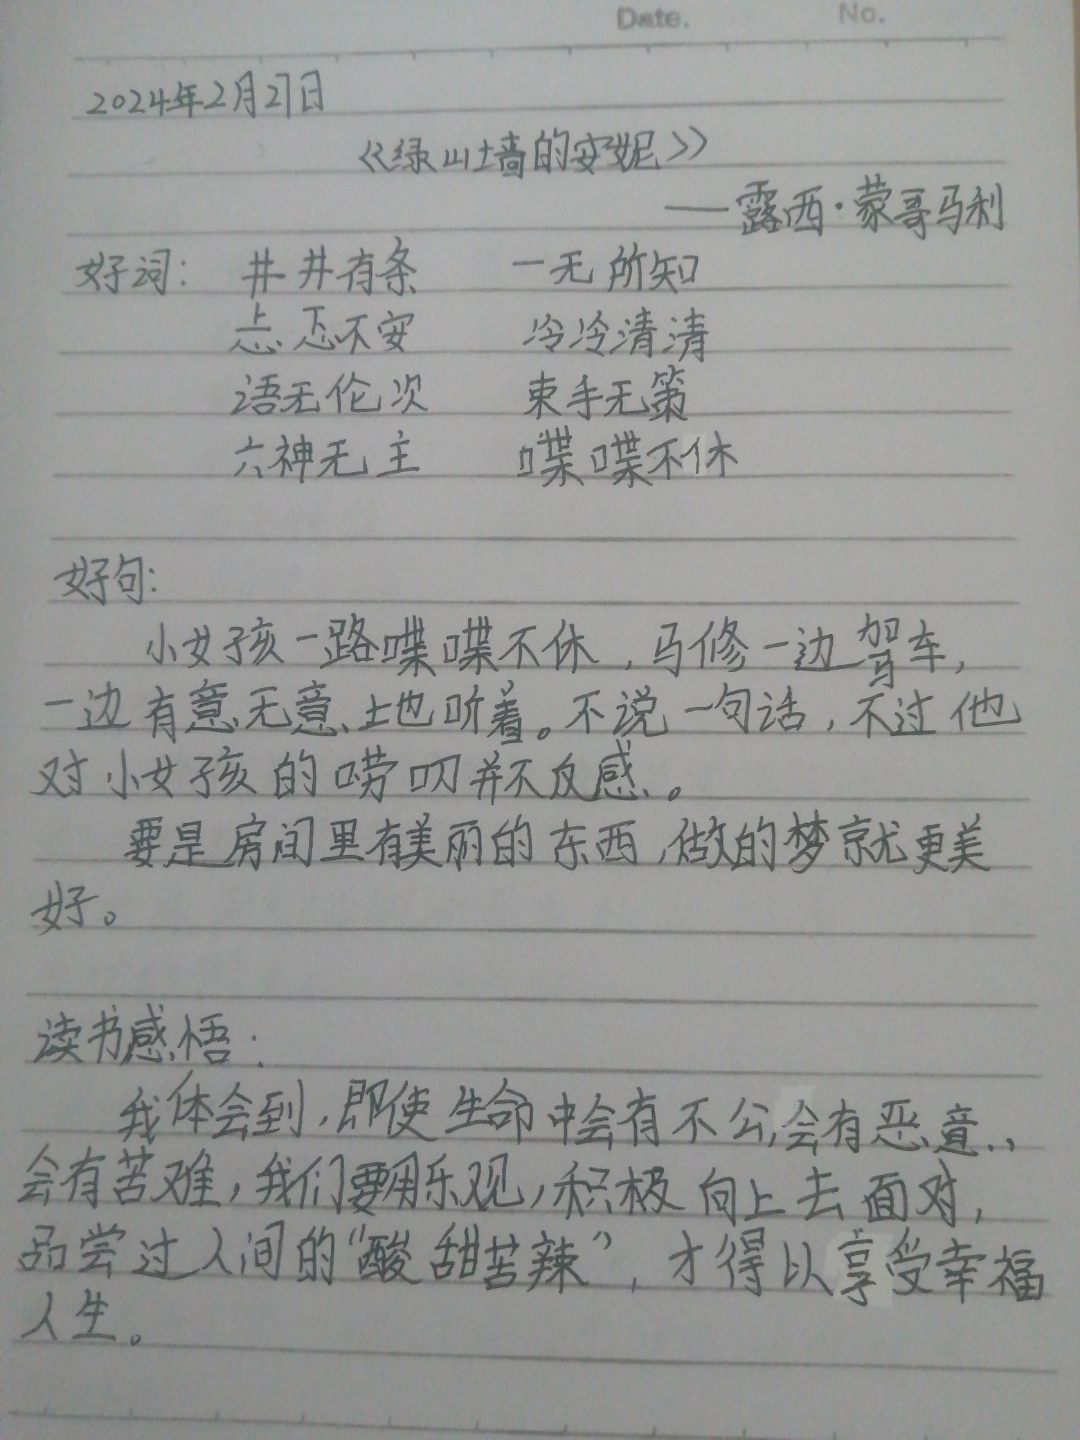 Date. No.
2024年2月27日
《绿山墙的安妮》
——露西·蒙哥马利
好词: 井井有条 一无所知
忐忑不安 冷冷清清
语无伦次 束手无策
六神无主 喋喋不休
好句:
小女孩一路喋喋不休,马修一边驾车,
一边有意无意土地听着。不说一句话,不过他
对小女孩的唠叨并不反感。
要是房间里有美丽的东西,做的梦就更美
好。
读书感悟:
我体会到,即使生命中会有不公,会有恶意,
会有苦难,我们要用乐观,积极向上去面对,
品尝过人间的“酸甜苦辣”,才得以享受幸福
人生。